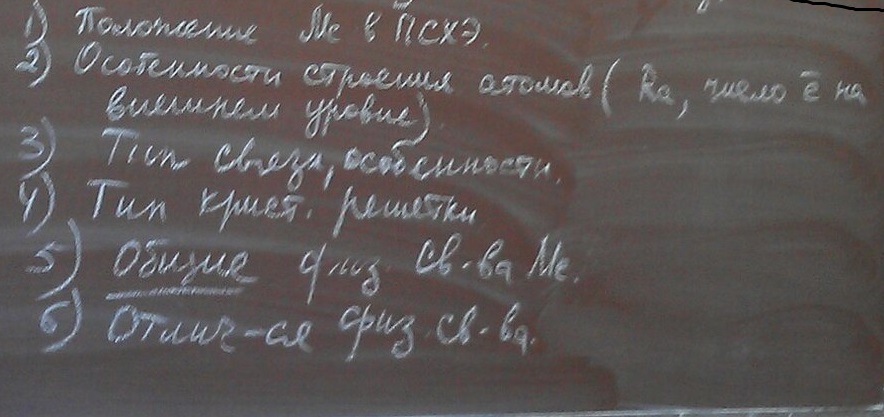 1) Положение Ме в ПСХЭ.
2) Особенности строения атомов ( Ra, число ē на
внешнем уровне)
3) Тип связи, особенности.
4) Тип крист. решетки
5) Общие физ. св-ва Ме.
6) Отлич-ся физ. св-ва.